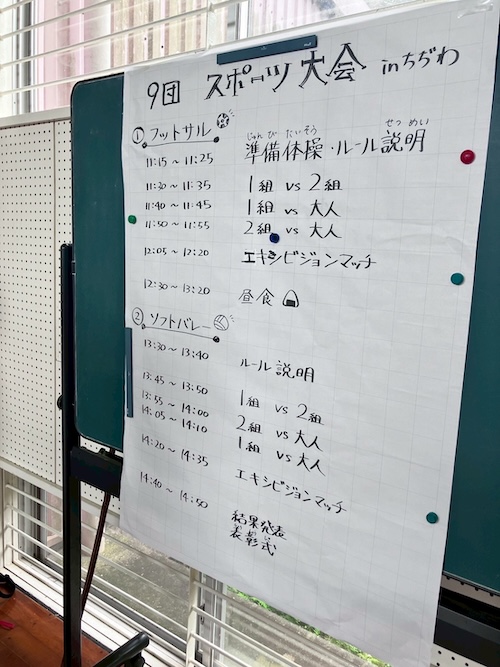 9団 スポーツ大会 inちぢわ
① フットサル
じゅんび たいそう せつ めい
11:15 ～ 11:25 準備体操・ルール説明
11:30 ～ 11:35 1組 vs 2組
11:40 ～ 11:45 1組 vs 大人
11:50 ～ 11:55 2組 vs 大人
12:05 ～ 12:20 エキシビジョンマッチ
12:30 ～ 13:20 昼食
② ソフトバレー
13:30 ～ 13:40 ルール説明
13:45 ～ 13:50 1組 vs 2組
13:55 ～ 14:00 2組 vs 大人
14:05 ～ 14:10 1組 vs 大人
14:20 ～ 14:35 エキシビジョンマッチ
14:40 ～ 14:50 結果発表
表彰式